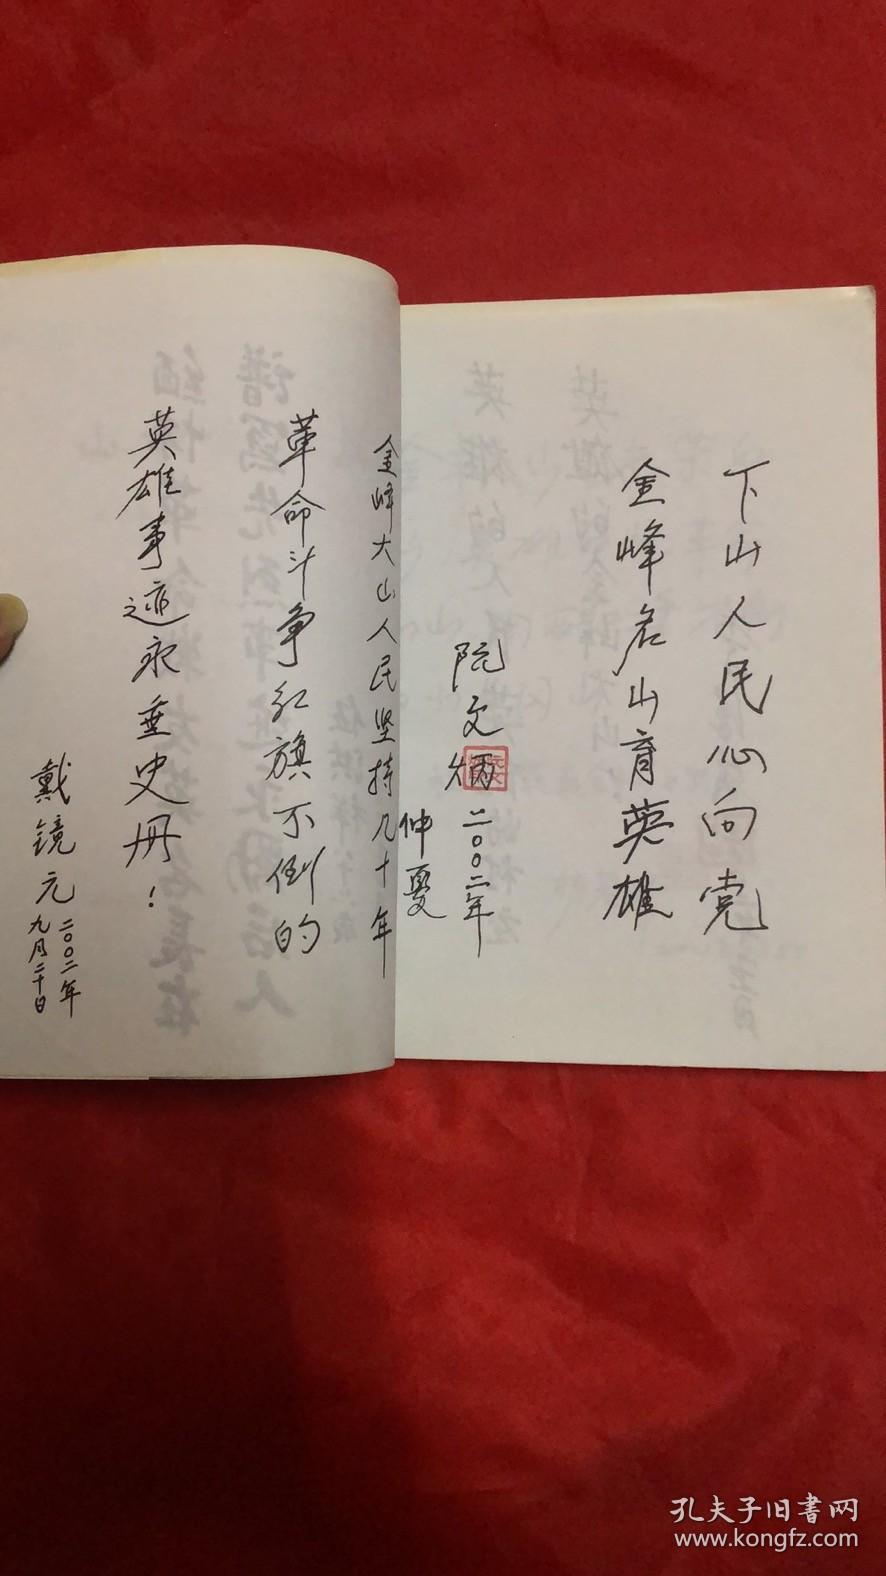 下山人民心向党
金峰名山育英雄
阮文炳 二〇〇二年
仲夏
金峰大山人民坚持几十年
革命斗争红旗不倒的
英雄事迹永垂史册！
戴镜元 二〇〇二年
九月二十日
孔夫子旧书网
www.kongfz.com